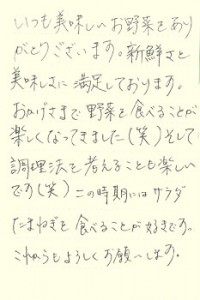 いつも美味しいお野菜をあり
がとうございます。新鮮さと
美味しさに満足しております。
おかげさまで野菜を食べることが
楽しくなってきました(笑)そして
調理法を考えることも楽しい
です(笑) この時期いはサラダ
たまねぎを食べることが好きです。
これからもよろしくお願いします。